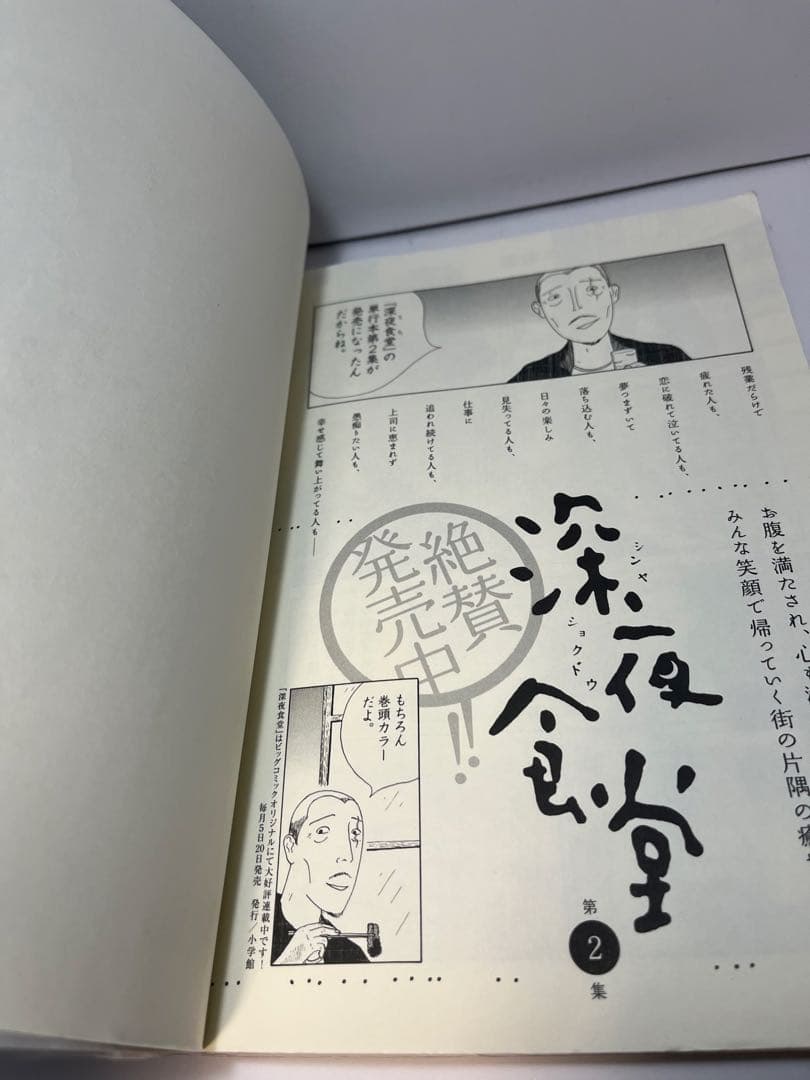 『深夜食堂』の
単行本第2集が
発売になったん
だからね。
残業だらけで
疲れた人も、
恋に破れて泣いてる人も、
夢つまずいて
落ち込む人も、
日々の楽しみ
見失ってる人も、
仕事に
追われ続けてる人も、
上司に恵まれず
愚痴りたい人も、
幸せ感じて舞い上がってる人も——
お腹を満たされ、心も
みんな笑顔で帰っていく街の片隅の
深夜食堂
シンヤ
ショクドウ
第2集
絶賛
発売中!!
もちろん
巻頭カラー
だよ。
『深夜食堂』はビッグコミックオリジナルにて大好評連載中です!
毎月5日20日発売 発行/小学館